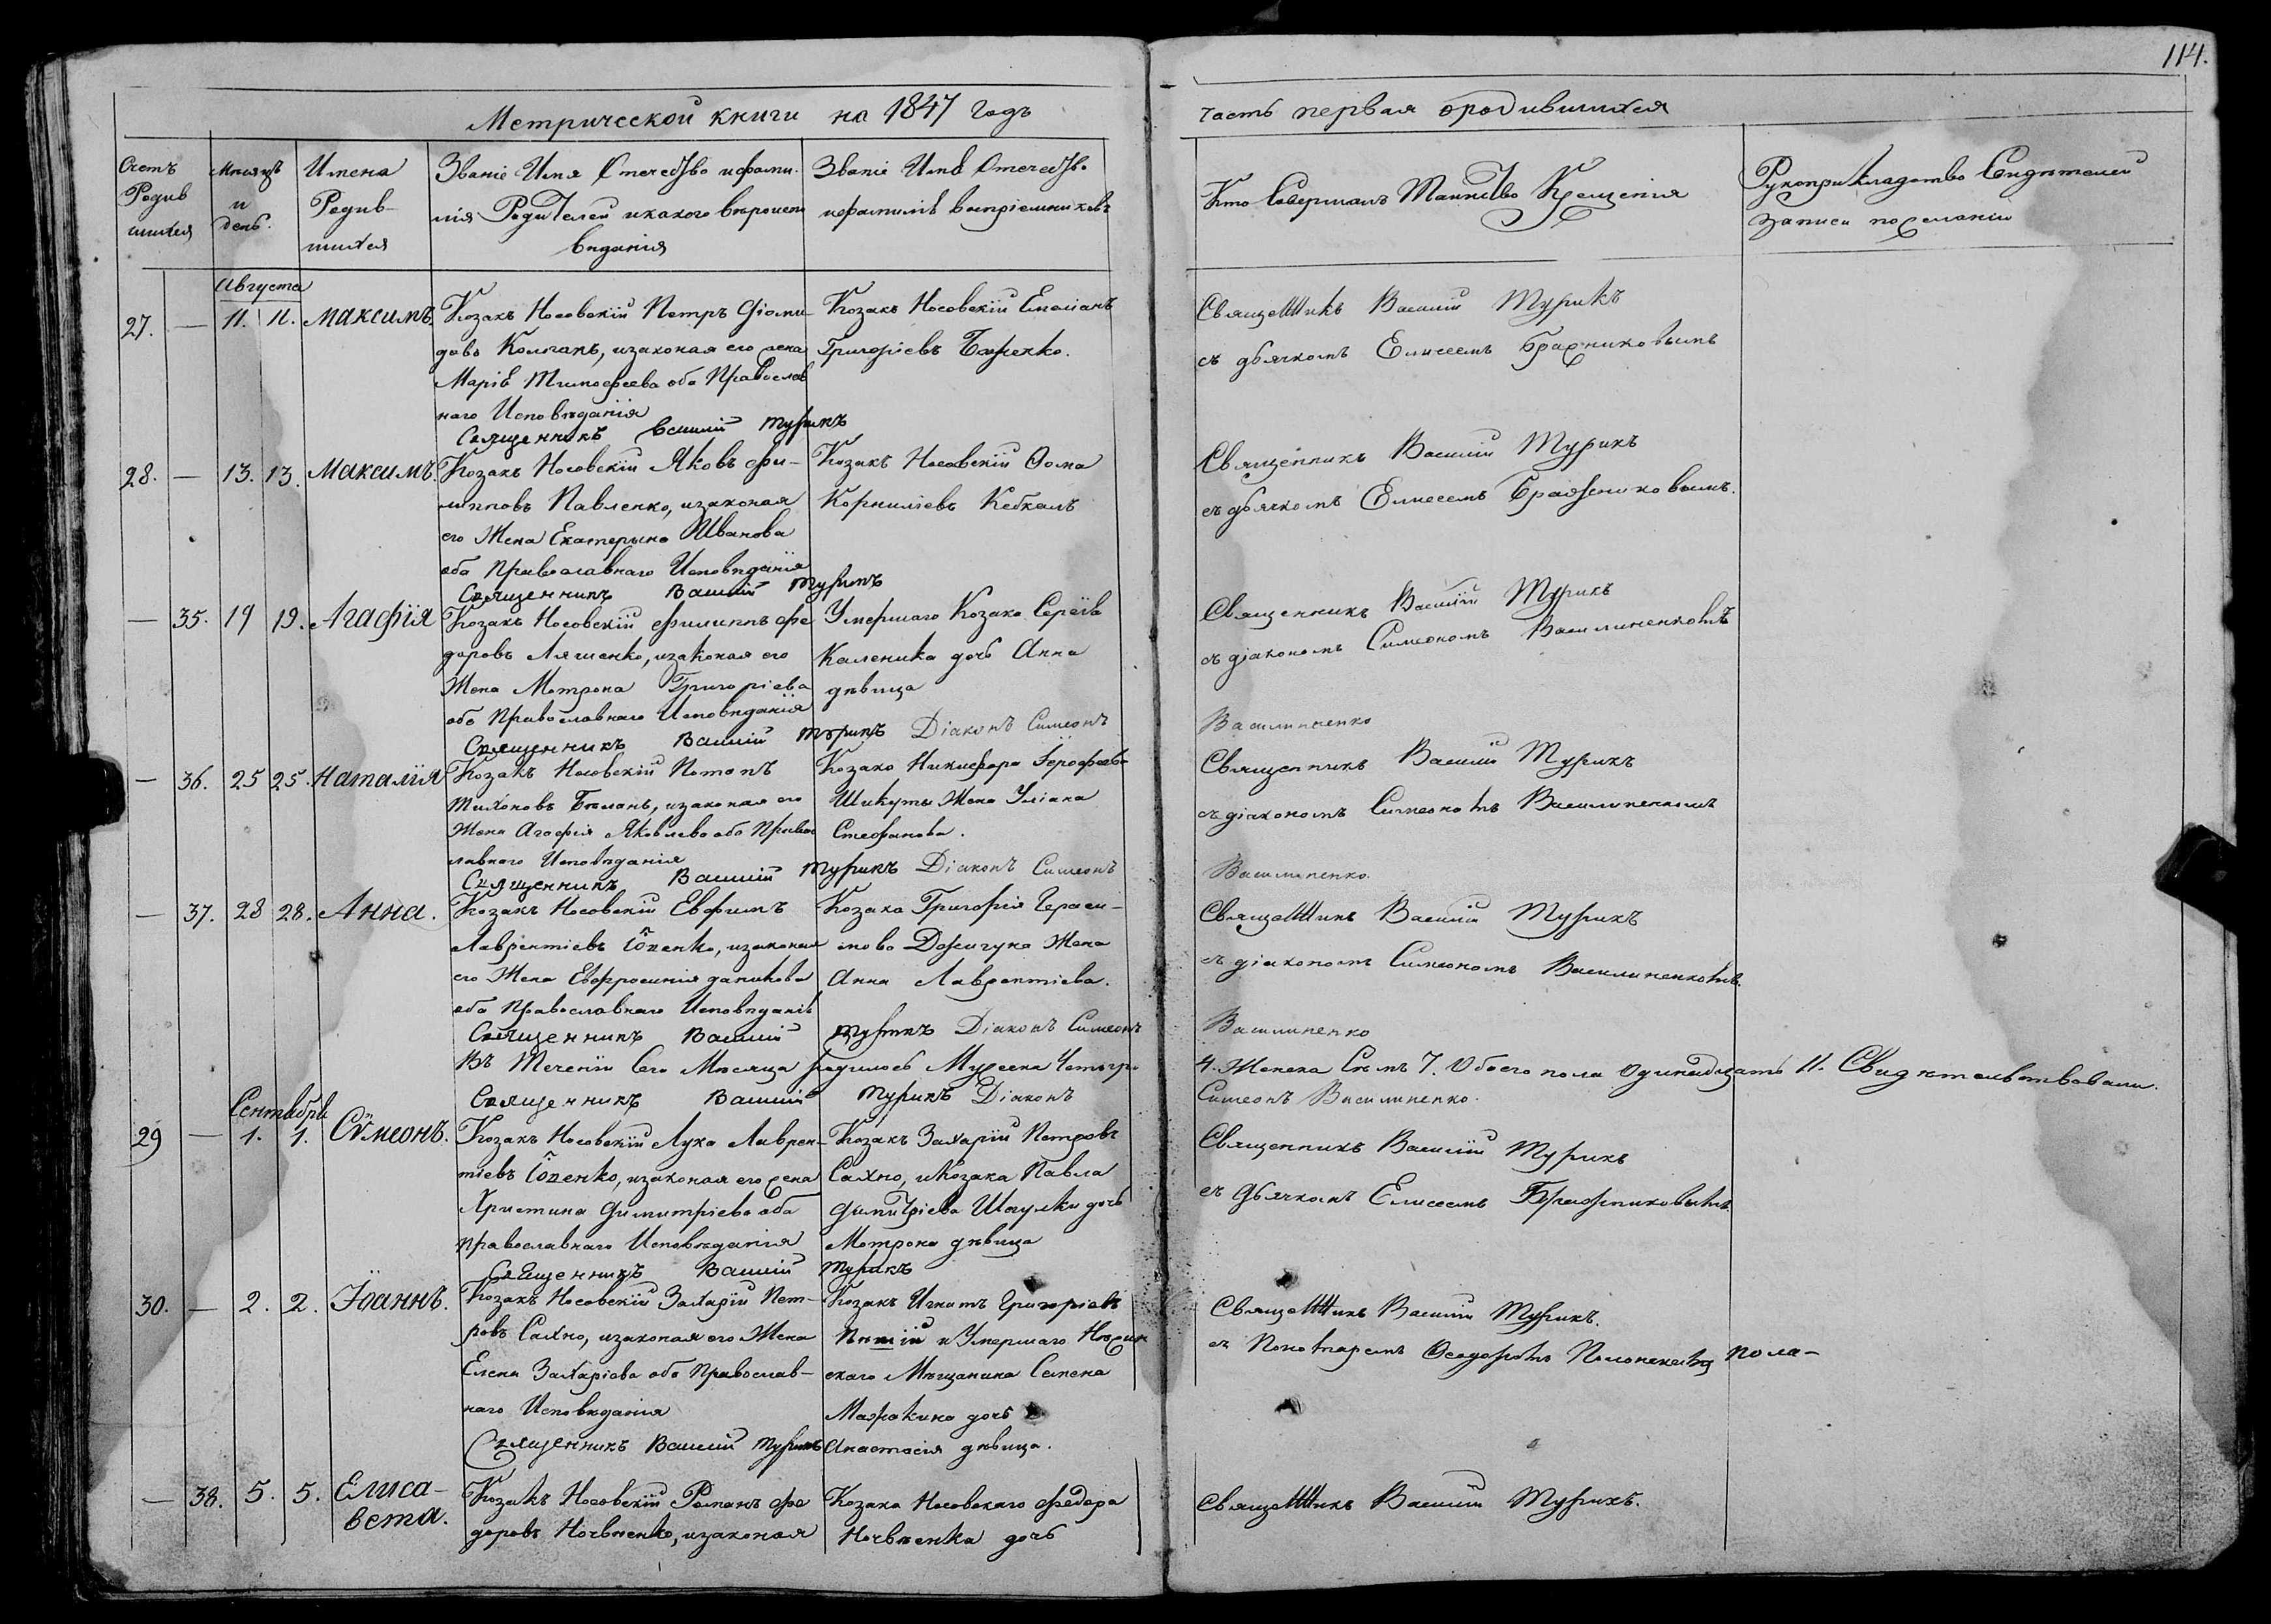 114.
Метрической книги на 1847 годъ
часть первая о родившихся
Счетъ Родившихся
Мѣсяцъ и день.
Имена Родившихся
Званіе Имя Отечество и фамилія Родителей и какого вѣроисповѣданія
Званіе Имя Отечество и фамилія воспріемниковъ
Кто Совершалъ Таинство Крещенія
Рукоприкладство Свидѣтелей записи по желанію
Августа
27. — 11. 11. Максимъ.
Козакъ Носовскій Петръ Діоми-
довъ Кологанъ, и законая его жена
Марія Тимофеева оба Православ
наго Исповѣданія
Козакъ Носовскій Емеліанъ
Григоріевъ
Священникъ Василій Турикъ
съ дьячкомъ Елисеемъ Бражниковымъ
Священникъ Василій Турикъ
28. — 13. 13. Максимъ.
Козакъ Носовскій Яковъ Фи-
липповъ Павленко, и законая
его Жена Екатерина Иванова
оба Православнаго Исповѣданія
Козакъ Носовскій Ѳома
Корниліевъ Кебкалъ
Священникъ Василій Турикъ
съ дьячкомъ Елисеемъ Бражниковымъ.
Священникъ Василій Турикъ
— 35. 19 19. Агафія
Козакъ Носовскій Филиппъ Фе
доровъ Ляшенко, и законая его
Жена Мотрона Григоріева
оба Православнаго Исповѣданія
Умершаго Козака Сергія
Каленика дочь Анна
дѣвица
Священникъ Василій Турикъ
съ діакономъ Симеономъ Василиненкомъ
Священникъ Василій Турикъ Діаконъ Симеонъ
Василиненко
— 36. 25 25. Наталія
Козакъ Носовскій Потапъ
Тихоновъ Бѣланъ, и законая его
Жена Агафія Яковлева оба Право
славнаго Исповѣданія
Козака Никифора Іерофеева
Шикуты Жена Уліана
Стефанова.
Священникъ Василій Турикъ
съ діакономъ Симеономъ Василиненкомъ
Священникъ Василій Турикъ Діаконъ Симеонъ
Василиненко.
— 37. 28 28. Анна.
Козакъ Носовскій Евфимъ
Лаврентіевъ Іопенко, и законая
его Жена Евфросинія Данилова
оба Православнаго Исповѣданія
Козака Григорія Гераси-
мова Жена
Анна Лаврентіева.
Священникъ Василій Турикъ
съ діакономъ Симеономъ Василиненкомъ.
Священникъ Василій Турикъ Діаконъ Симеонъ
Василиненко
Въ Теченіи Сего Мѣсяца родилось Мужеска Четыри
4. Женска Семъ 7. Обоего пола Одинадцать 11. Свидѣтельствовали.
Священникъ Василій Турикъ Діаконъ
Симеонъ Василиненко.
Сентябрь
29 — 1. 1. Сѵмеонъ.
Козакъ Носовскій Лука Лаврен-
тіевъ Іопенко, и законая его жена
Христина Димитріева оба
православнаго Исповѣданія
Козакъ Захарій Петровъ
Сахно, и Козака Павла
Димитріева Шаулки дочь
Мотрона дѣвица
Священникъ Василій Турикъ
съ Дьячкомъ Елисеемъ Бражниковымъ.
Священникъ Василій Турикъ
30. — 2. 2. Іоаннъ.
Козакъ Носовскій Захарій Пет-
ровъ Сахно, и законая его Жена
Елена Захаріева оба Православ-
наго Исповѣданія
Козакъ Игнатъ Григоріевъ
и Умершаго Нѣжин
скаго Мѣщанина Семена
дочь
Анастасія дѣвица.
Священникъ Василій Турикъ.
съ Понотаремъ Ѳеодоромъ
Священникъ Василій Турикъ
— 38. 5. 5. Елиса-
вета.
Козакъ Носовскій Романъ Фе
доровъ Ночвненко, и законая
Козака Носовскаго Федора
Ночвненка дочь
Священникъ Василій Турикъ.